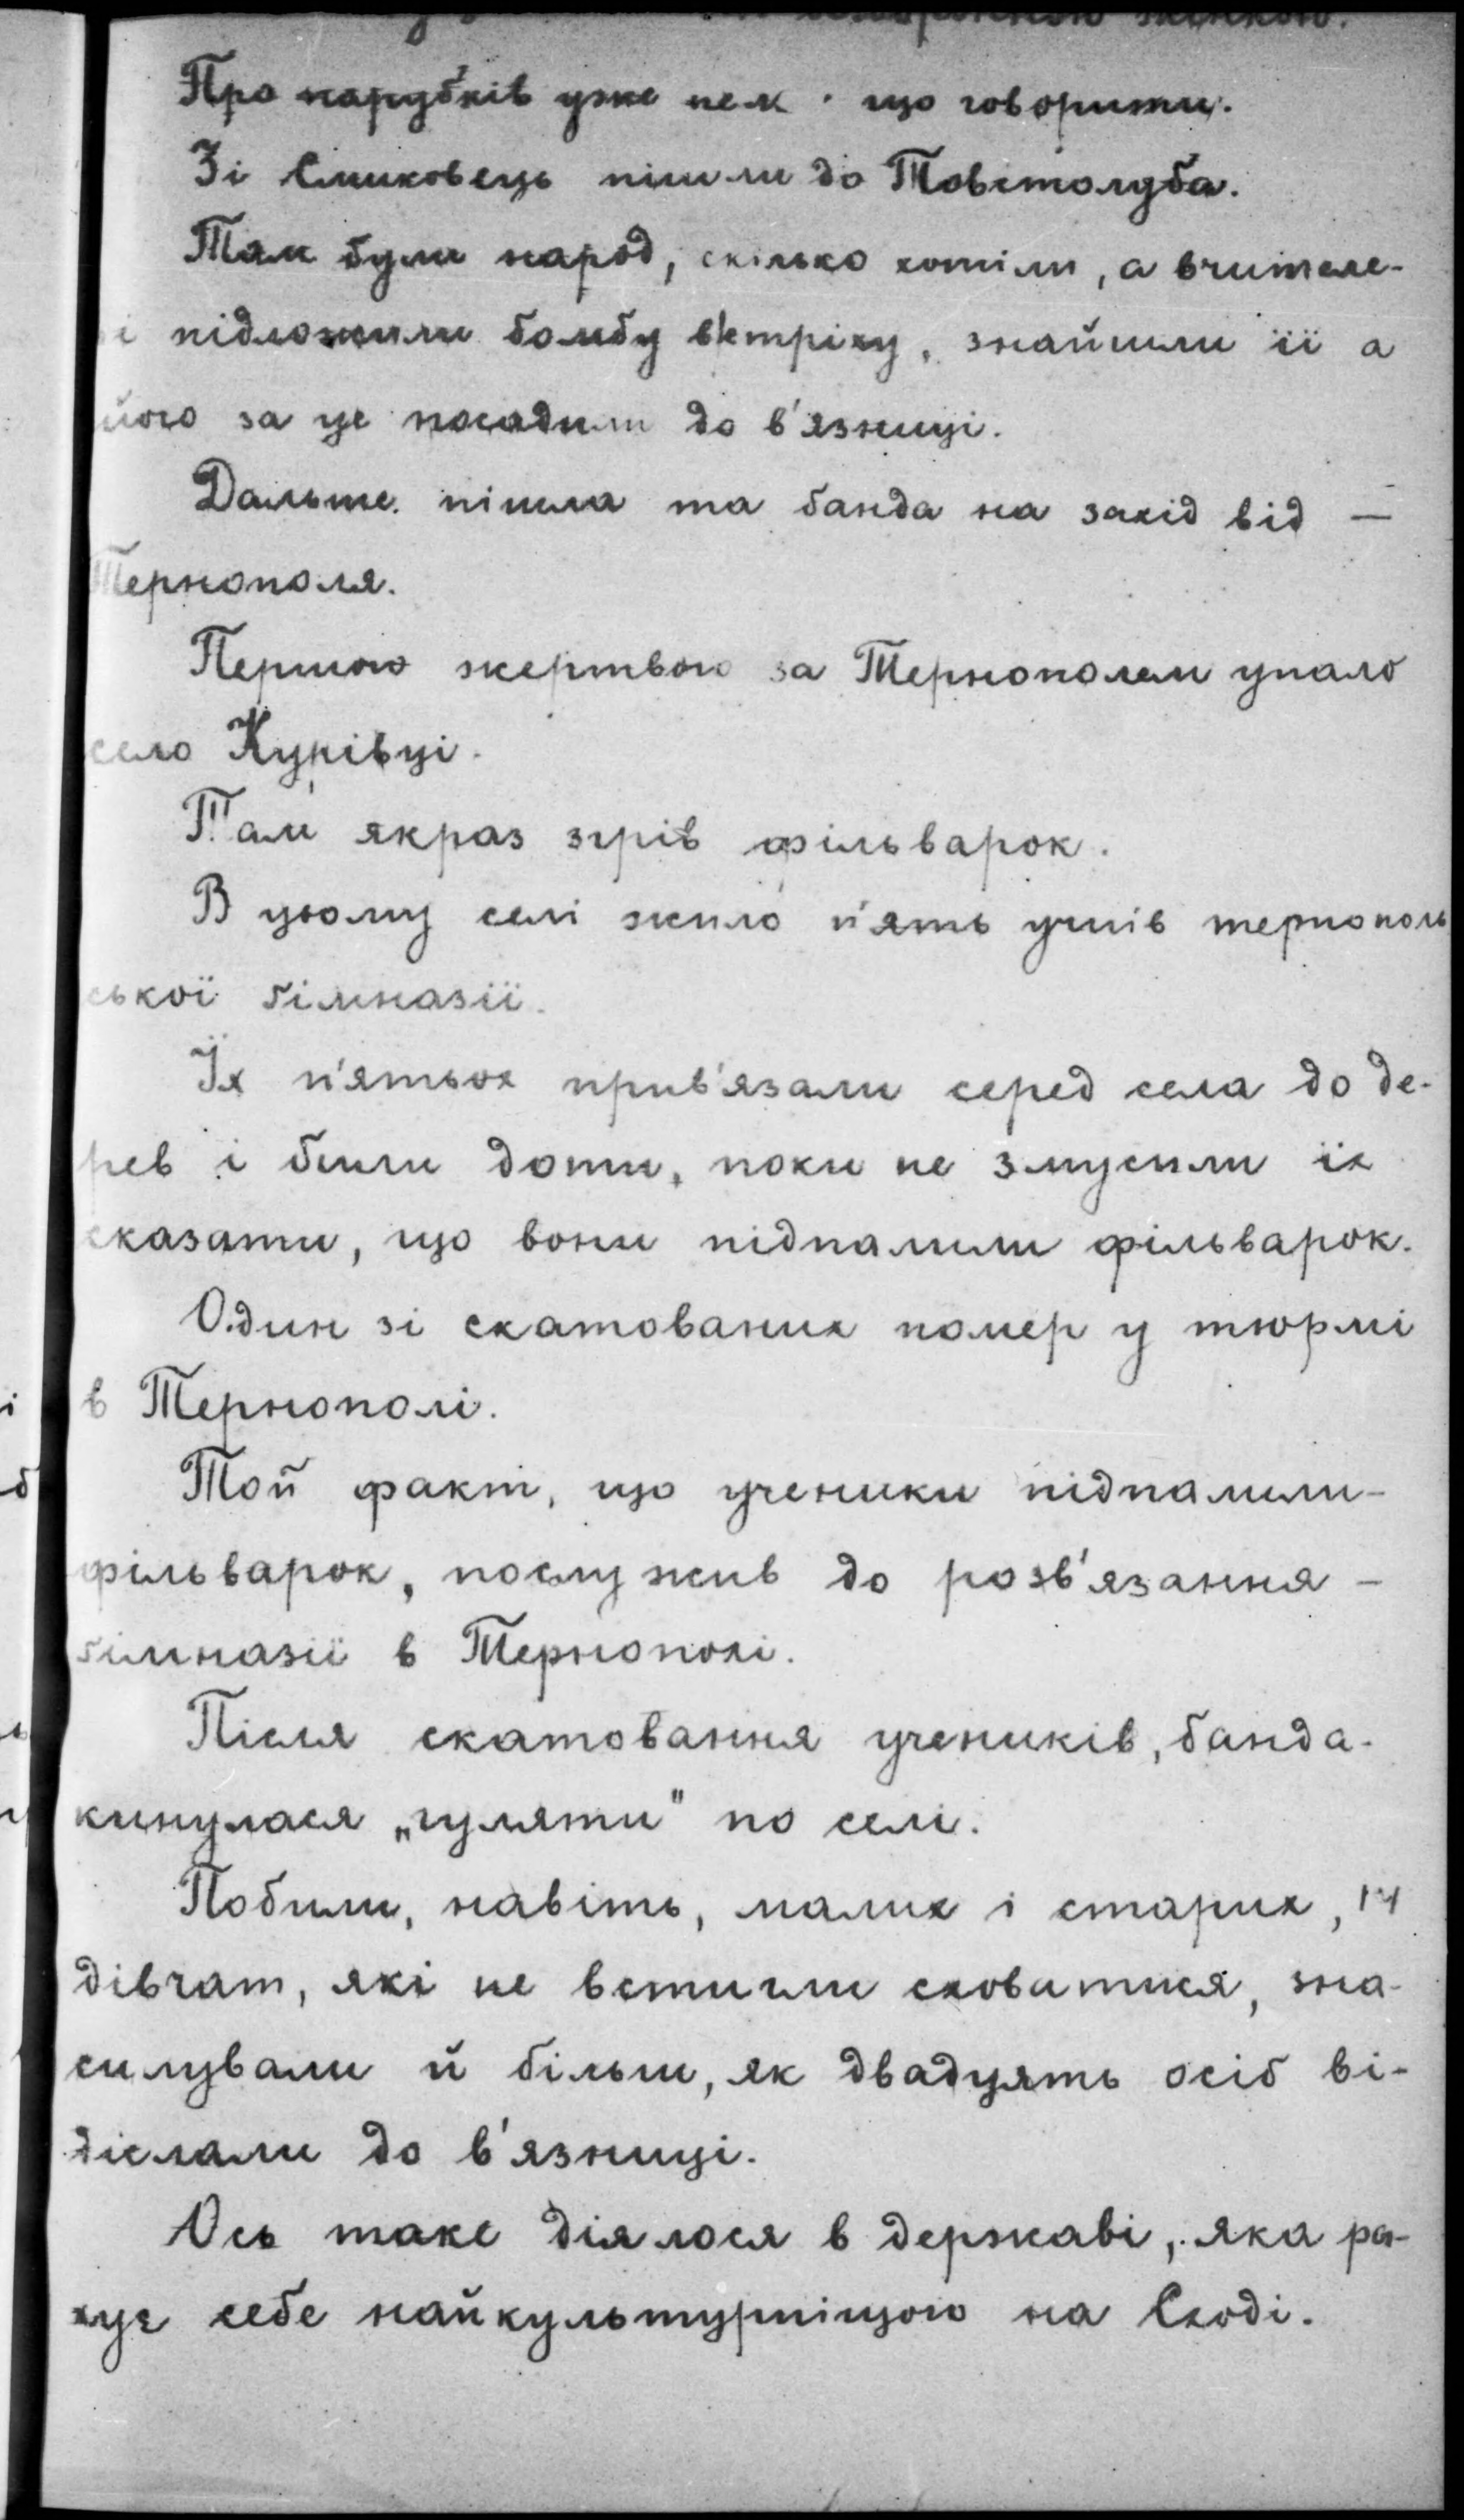 жінкою.
Про парубків уже нема що говорити.
Зі Смиковець пішли до Товстолуба.
Там були народ, скілько хотіли, а вчителе-
ві підложили бомбу в стріху, знайшли її а
його за це посадили до в'язниці.
Дальше пішла та банда на захід від —
Тернополя.
Першою жертвою за Тернополем упало
село Купівці.
Там якраз згрів фільварок.
В цьому селі жило п'ять учнів тернополь
ської гімназії.
Їх п'ятьох прив'язали серед села до де-
рев і били доти, поки не змусили їх
сказати, що вони підпалили фільварок.
Один зі скатованих помер у тюрмі
в Тернополі.
Той факт, що ученики підпалили-
фільварок, послужив до розв'язання -
гімназії в Тернополі.
Після скатовання учеників, банда-
кинулася „гуляти" по селі.
Побили, навіть, малих і старих, 14
дівчат, які не встигли сховатися, зна-
силували й більш, як двадцять осіб ві-
діслали до в'язниці.
Ось таке діялося в державі, яка ра-
хує себе найкультурнішою на Сході.